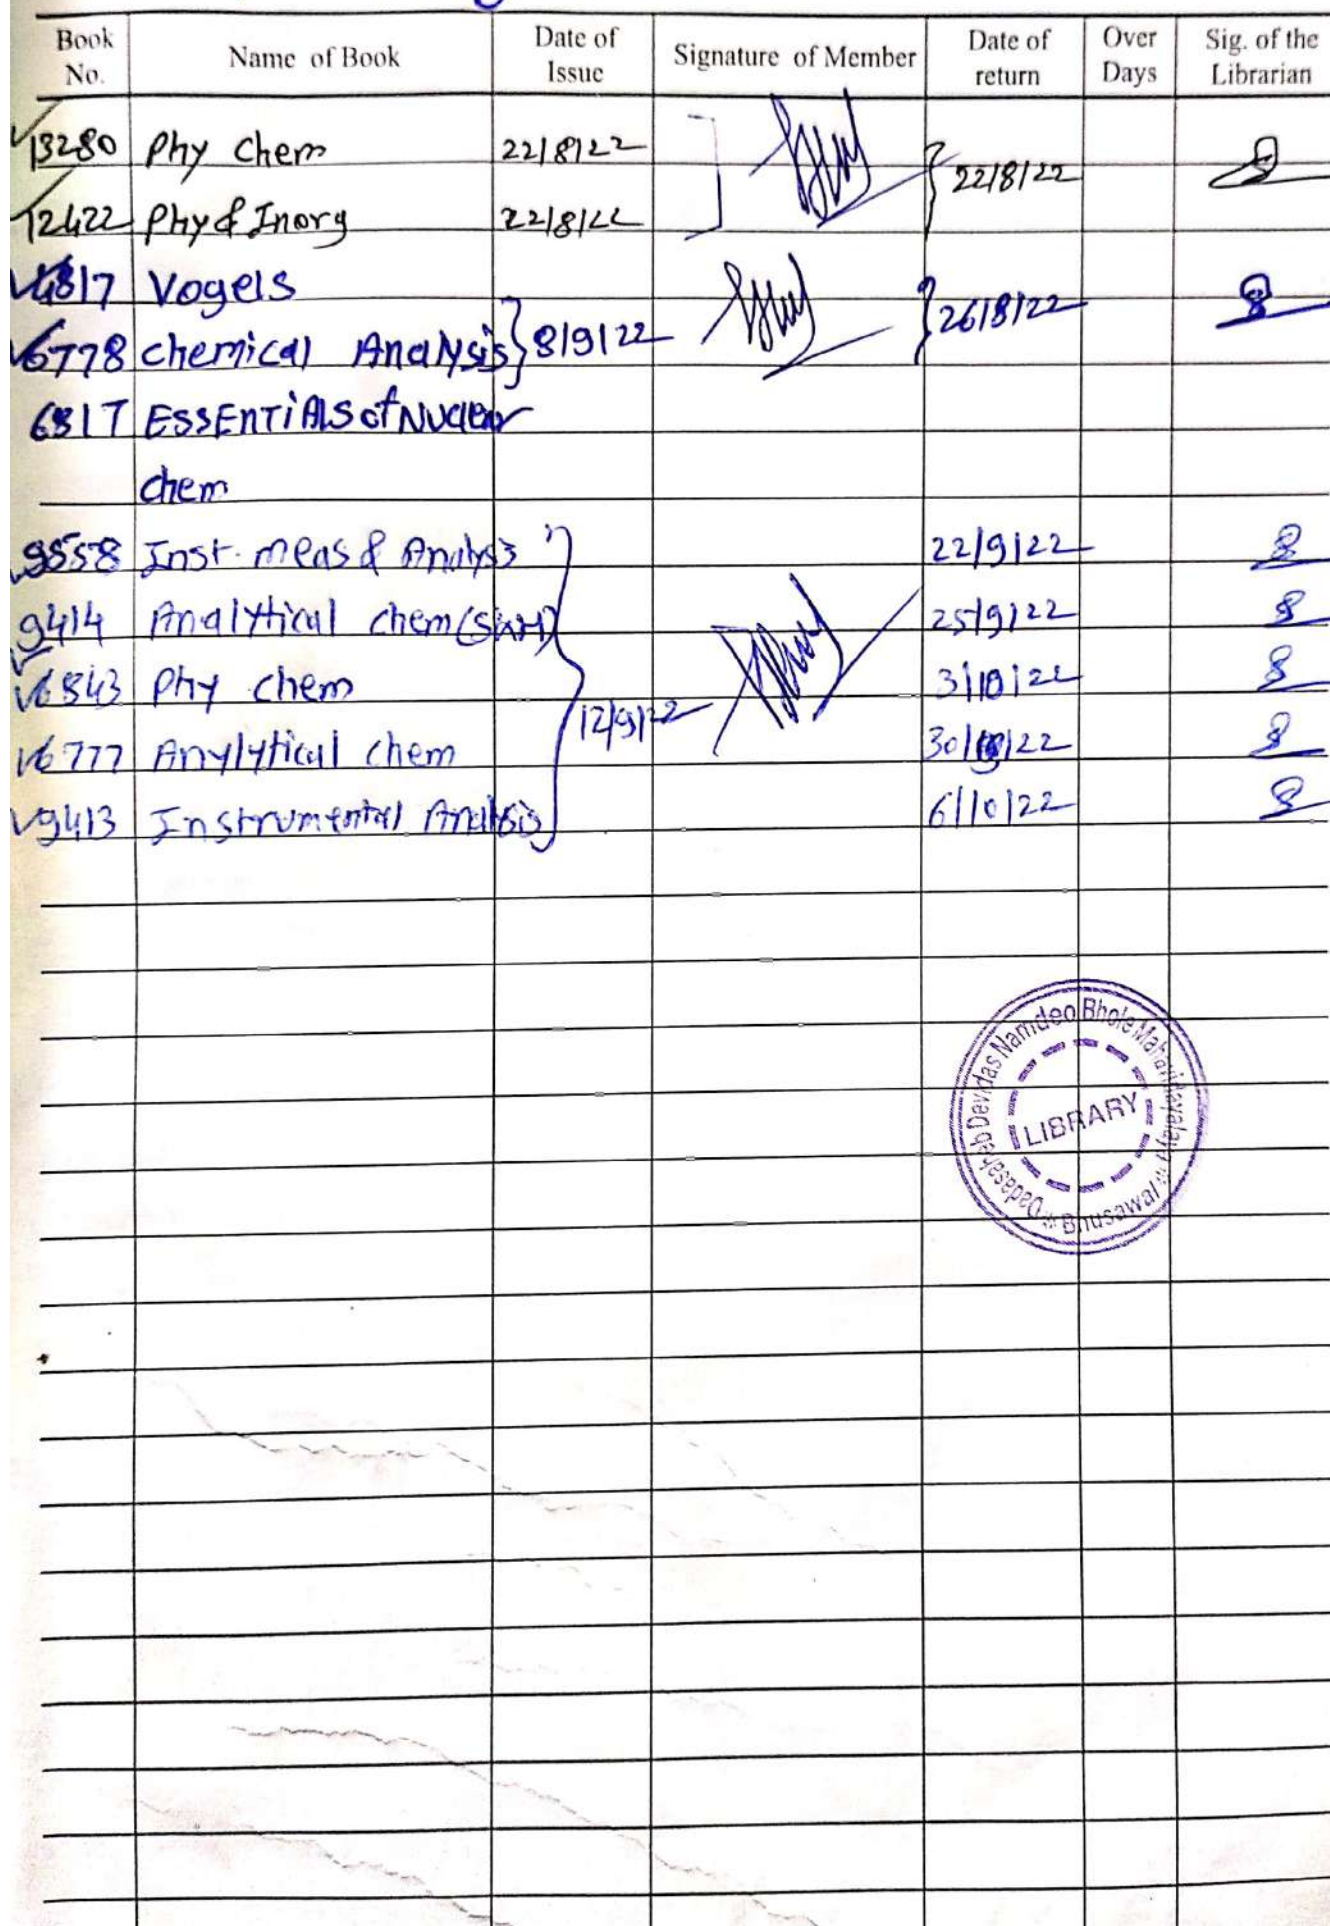 Book No. Name of Book Date of Issue Signature of Member Date of return Over Days Sig. of the Librarian
13280 Phy Chem 22/8/22 22/8/22
12422 Phy & Inorg 22/8/22
4817 Vogels
6778 chemical Analysis 8/9/22 26/8/22
6817 ESSENTiALS of Nuclear
chem
9558 Inst. meas & Analysis 22/9/22
9414 Analytical chem 25/9/22
6843 Phy chem 3/10/22
6777 Anylytical chem 12/9/22 30/ /22
9413 Instrumental Analysis 6/10/22
Dadasaheb Devidas Namdeo Bhole Mahavidayalaya * Bhusawal *
LIBRARY